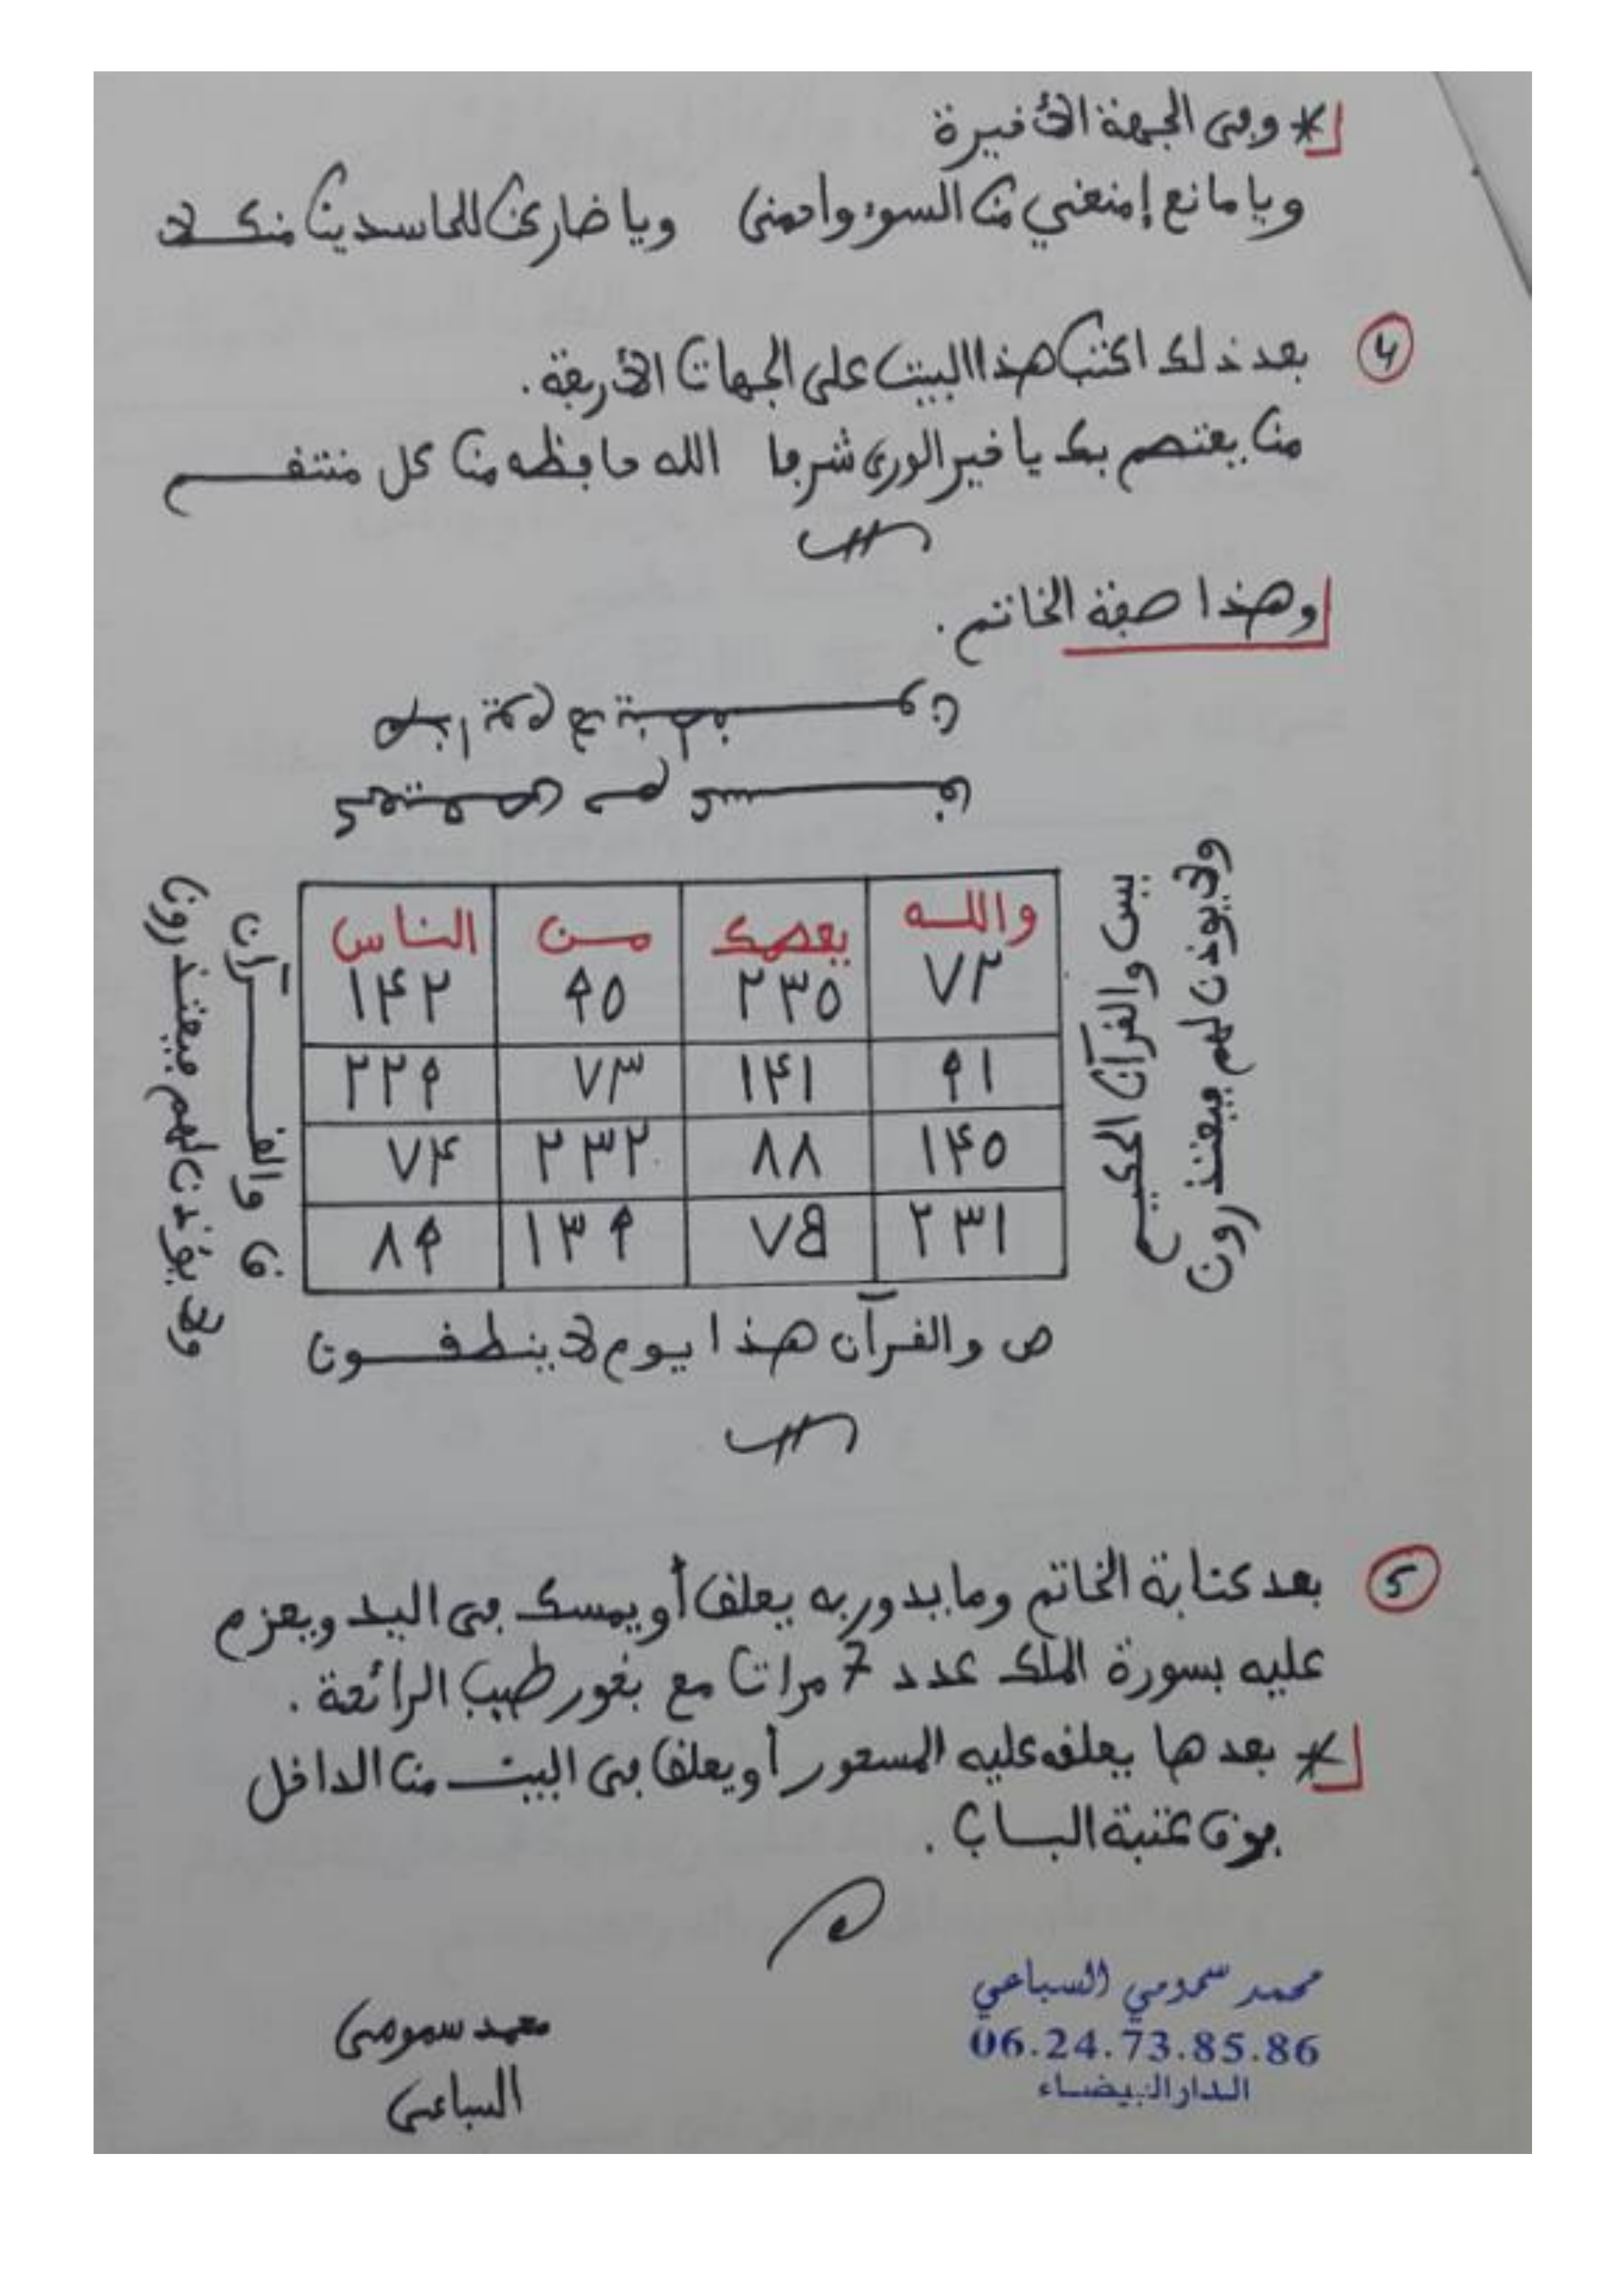 * وفى الجهة الأخيرة
ويا مانع إمنعني من السوء واحمنى ويا ضار كن للحاسدين منكلا
4 بعد ذلك اكتب هذا البيت على الجهات الأربعة .
من يعتصم بك يا خير الورى شرفا الله حافظه من كل منتقم
وهذا صفة الخاتم .
كهيعص حم عسق
والله يعصمك من الناس
٧٢ ٢٣٥ ٩٥ ١٤٢
٩١ ١٤١ ٧٣ ٢٢٩
١٤٥ ٨٨ ٢٣٢ ٧٤
٢٣١ ٧٥ ١٣٩ ٨٩
يس والقرآن الحكيم
ولا يوذن لهم فيعتذرون
ق والقرآن
ولا يؤذن لهم فيعتذرون
ص والقرآن هذا يوم لا ينطقون
5 بعد كتابة الخاتم وما يدور به يعلق أو يمسك فى اليد ويعزم
عليه بسورة الملك عدد 7 مرات مع بخور طيب الرائحة .
* بعدها يعلقه عليه المسحور أو يعلق فى البيت من الداخل
فوق عتبة الباب .
محمد سمومي السباعي
06.24.73.85.86
الدار البيضاء
محمد سمومى
السباعى